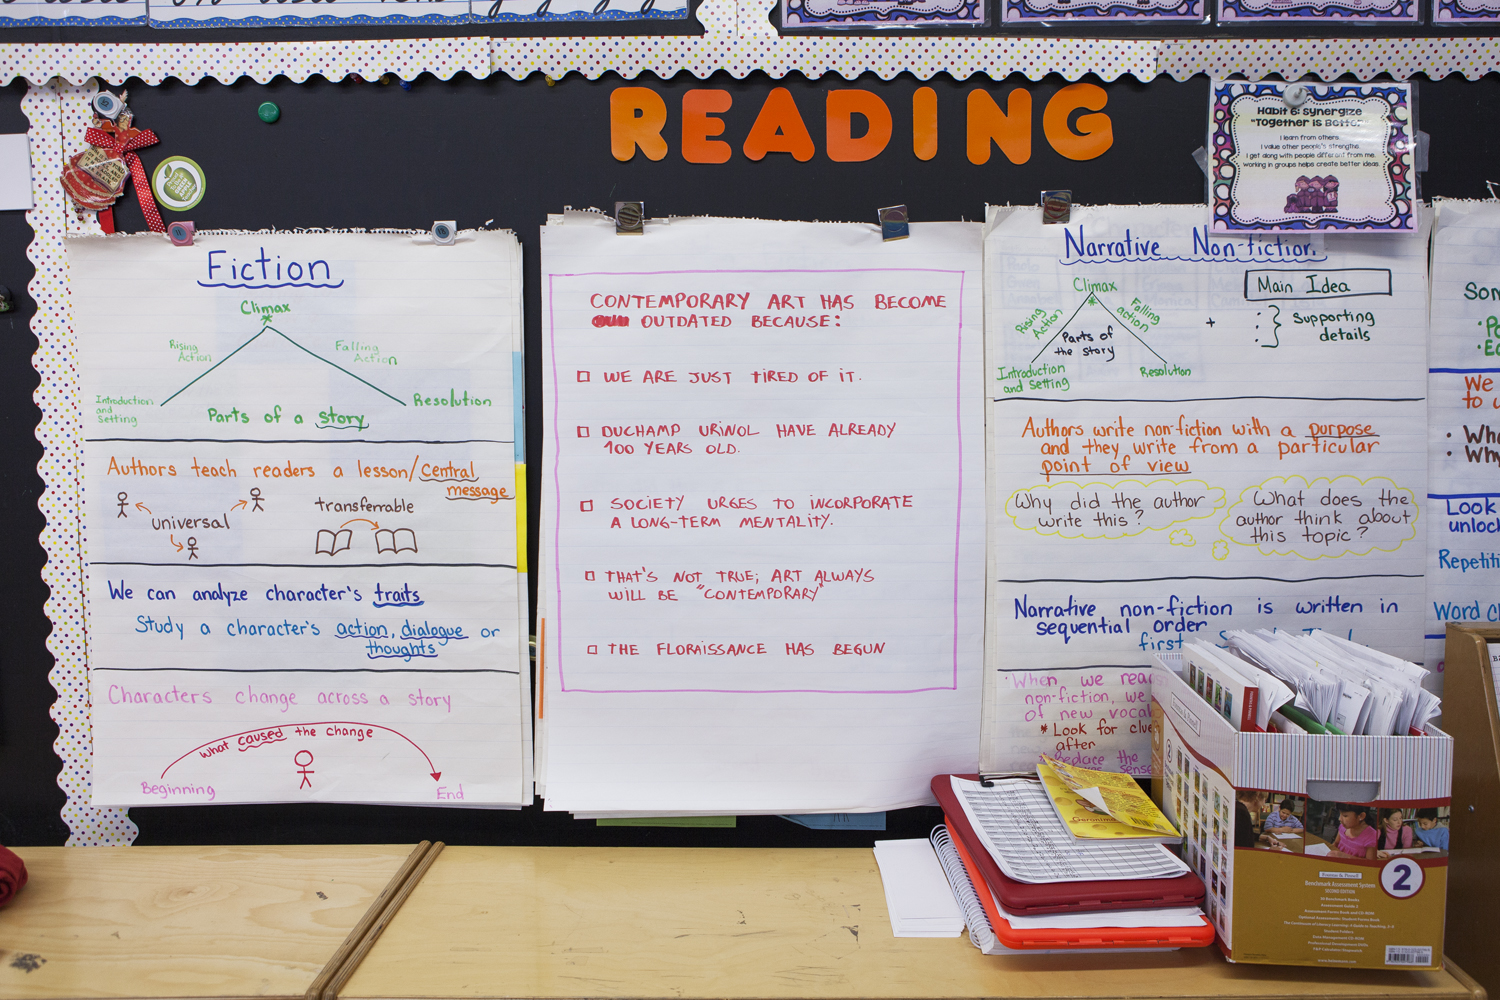 READING
Habit 6: Synergize
"Together is Better"
I learn from others.
I value other people's strengths.
I get along with people different from me.
Working in groups helps create better ideas.
Fiction
Climax
Rising
Action
Falling
Action
Introduction
and
Setting
Resolution
Parts of a story
Authors teach readers a lesson/central
message
universal
transferrable
We can analyze character's traits
Study a character's action, dialogue or
thoughts
Characters change across a story
what caused the change
Beginning
End
CONTEMPORARY ART HAS BECOME
OUTDATED BECAUSE:
WE ARE JUST TIRED OF IT.
DUCHAMP URINOL HAVE ALREADY
100 YEARS OLD.
SOCIETY URGES TO INCORPORATE
A LONG-TERM MENTALITY.
THAT'S NOT TRUE; ART ALWAYS
WILL BE "CONTEMPORARY"
THE FLORAISSANCE HAS BEGUN
Narrative Non-fiction
Climax
Rising
Action
Falling
action
Parts of
the story
Introduction
and Setting
Resolution
+
Main Idea
Supporting
details
Authors write non-fiction with a purpose
and they write from a particular
point of view
Why did the author
write this?
What does the
author think about
this topic?
Narrative non-fiction is written in
sequential order
first
When we read
non-fiction, we
of new vocab
* Look for clue
after
* Replace the
sense
Som
We
to u
• Wha
• Why
Look
unlock
Repetiti
Word cl
2
Benchmark Assessment System
SECOND EDITION